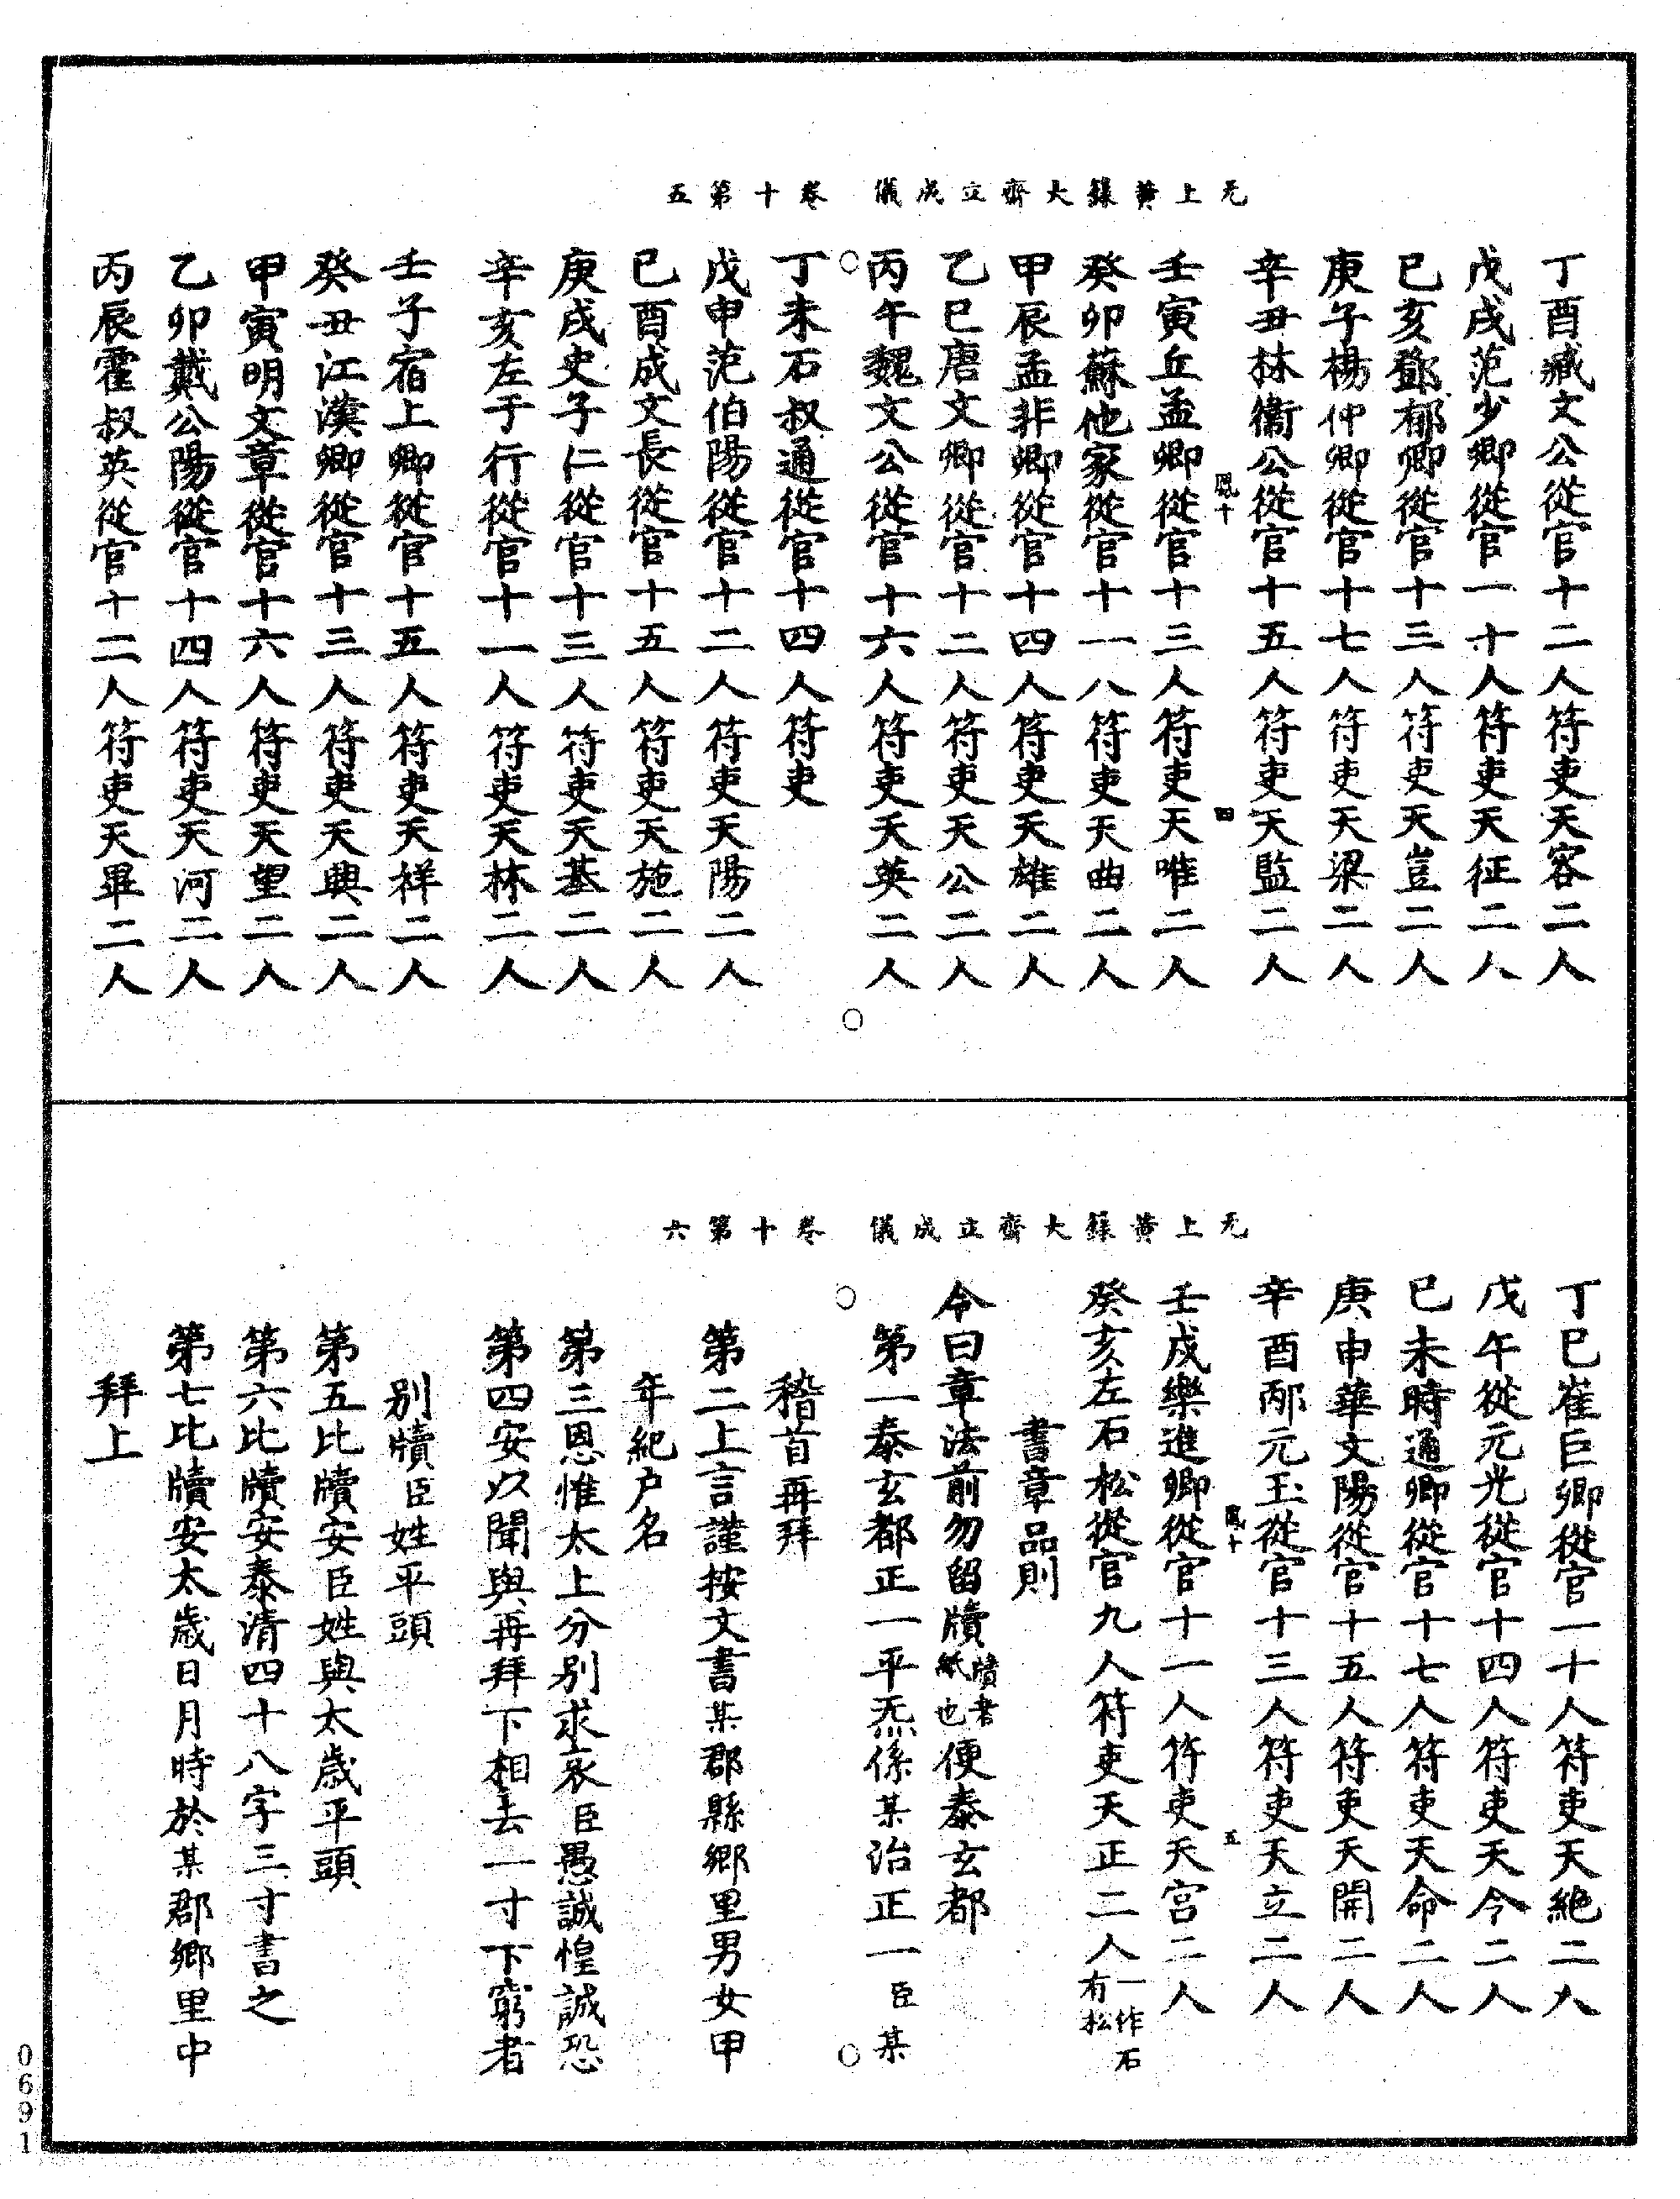 无上黃籙大齋立成儀　卷十第五
丁酉臧文公從官十二人符吏天容二人
戊戌范少卿從官一十人符吏天征二人
己亥鄧郁卿從官十三人符吏天豈二人
庚子楊仲卿從官十七人符吏天梁二人
辛丑林衞公從官十五人符吏天監二人
鳳十　四
壬寅丘孟卿從官十三人符吏天唯二人
癸卯蘇他家從官十一人符吏天曲二人
甲辰孟非卿從官十四人符吏天雄二人
乙巳唐文卿從官十二人符吏天公二人
丙午魏文公從官十六人符吏天英二人
丁未石叔通從官十四人符吏
戊申范伯陽從官十二人符吏天陽二人
己酉成文長從官十五人符吏天施二人
庚戌史子仁從官十三人符吏天基二人
辛亥左于行從官十一人符吏天林二人
壬子宿上卿從官十五人符吏天祥二人
癸丑江漢卿從官十三人符吏天興二人
甲寅明文章從官十六人符吏天望二人
乙卯戴公陽從官十四人符吏天河二人
丙辰霍叔英從官十二人符吏天畢二人
无上黃籙大齋立成儀　卷十第六
丁巳崔巨卿從官一十人符吏天絕二人
戊午從元光從官十四人符吏天令二人
己未時通卿從官十七人符吏天命二人
庚申華文陽從官十五人符吏天開二人
辛酉邴元玉從官十三人符吏天立二人
鳳十　五
壬戌樂進卿從官十一人符吏天宮二人
癸亥左石松從官九人符吏天正二人一作石有松
書章品則
令曰章法前勿留牘牘書紙也便泰玄都
第一泰玄都正一平炁係某治正一臣某
稽首再拜
第二上言謹按文書某郡縣鄉里男女甲
年紀户名
第三恩惟太上分别求哀臣愚誠惶誠恐
第四安以聞與再拜下相去一寸下窮者
别牘臣姓平頭
第五比牘安臣姓與太歲平頭
第六比牘安泰清四十八字三寸書之
第七比牘安太歲日月時於某郡鄉里中
拜上
0691